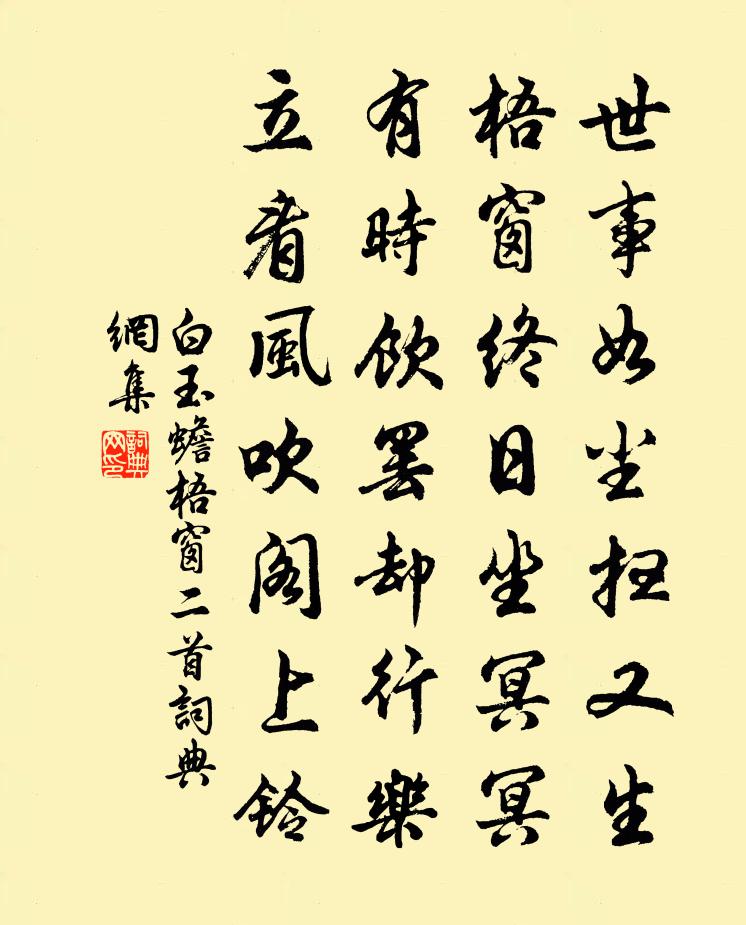 世事如尘扫又生
梧窗終日坐冥冥
有時飲罢却行樂
立看風吹阁上铃
白玉蟾梧窗二首詞典
網集
詞典
网印